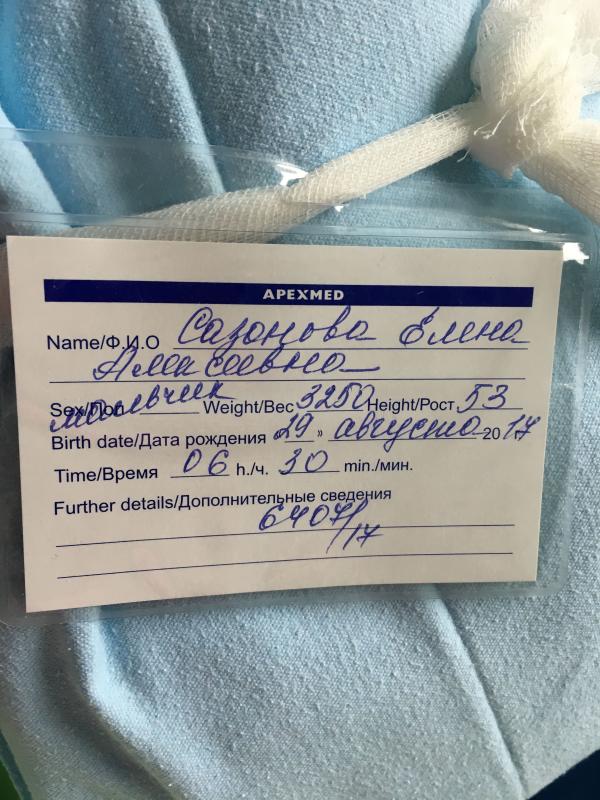 APEXMED
Name/Ф.И.О Сазонова Елена
Алексеевна
Sex/Пол мальчик Weight/Вес 3250 Height/Рост 53
Birth date/Дата рождения 29 » августа 2017
Time/Время 06 h./ч. 30 min./мин.
Further details/Дополнительные сведения
6407/17